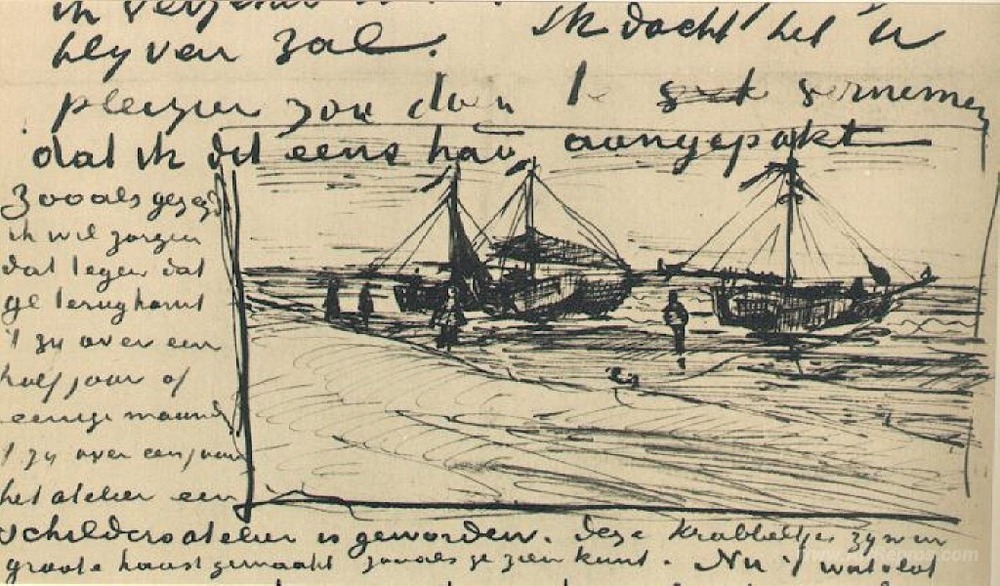 blyven zal. Ik dacht het U
pleizier zou doen te vernemen
dat ik dit eens had aangepakt
Zooals gezegd
ik wil zorgen
dat tegen dat
ge terugkomt
't zij over een
half jaar of
eenige maand
't zij over een jaar
het atelier een
schildersatelier is geworden. Deze krabbeltjes zyn in
groote haast gemaakt zooals ge zien kunt. Nu 't wat vlot